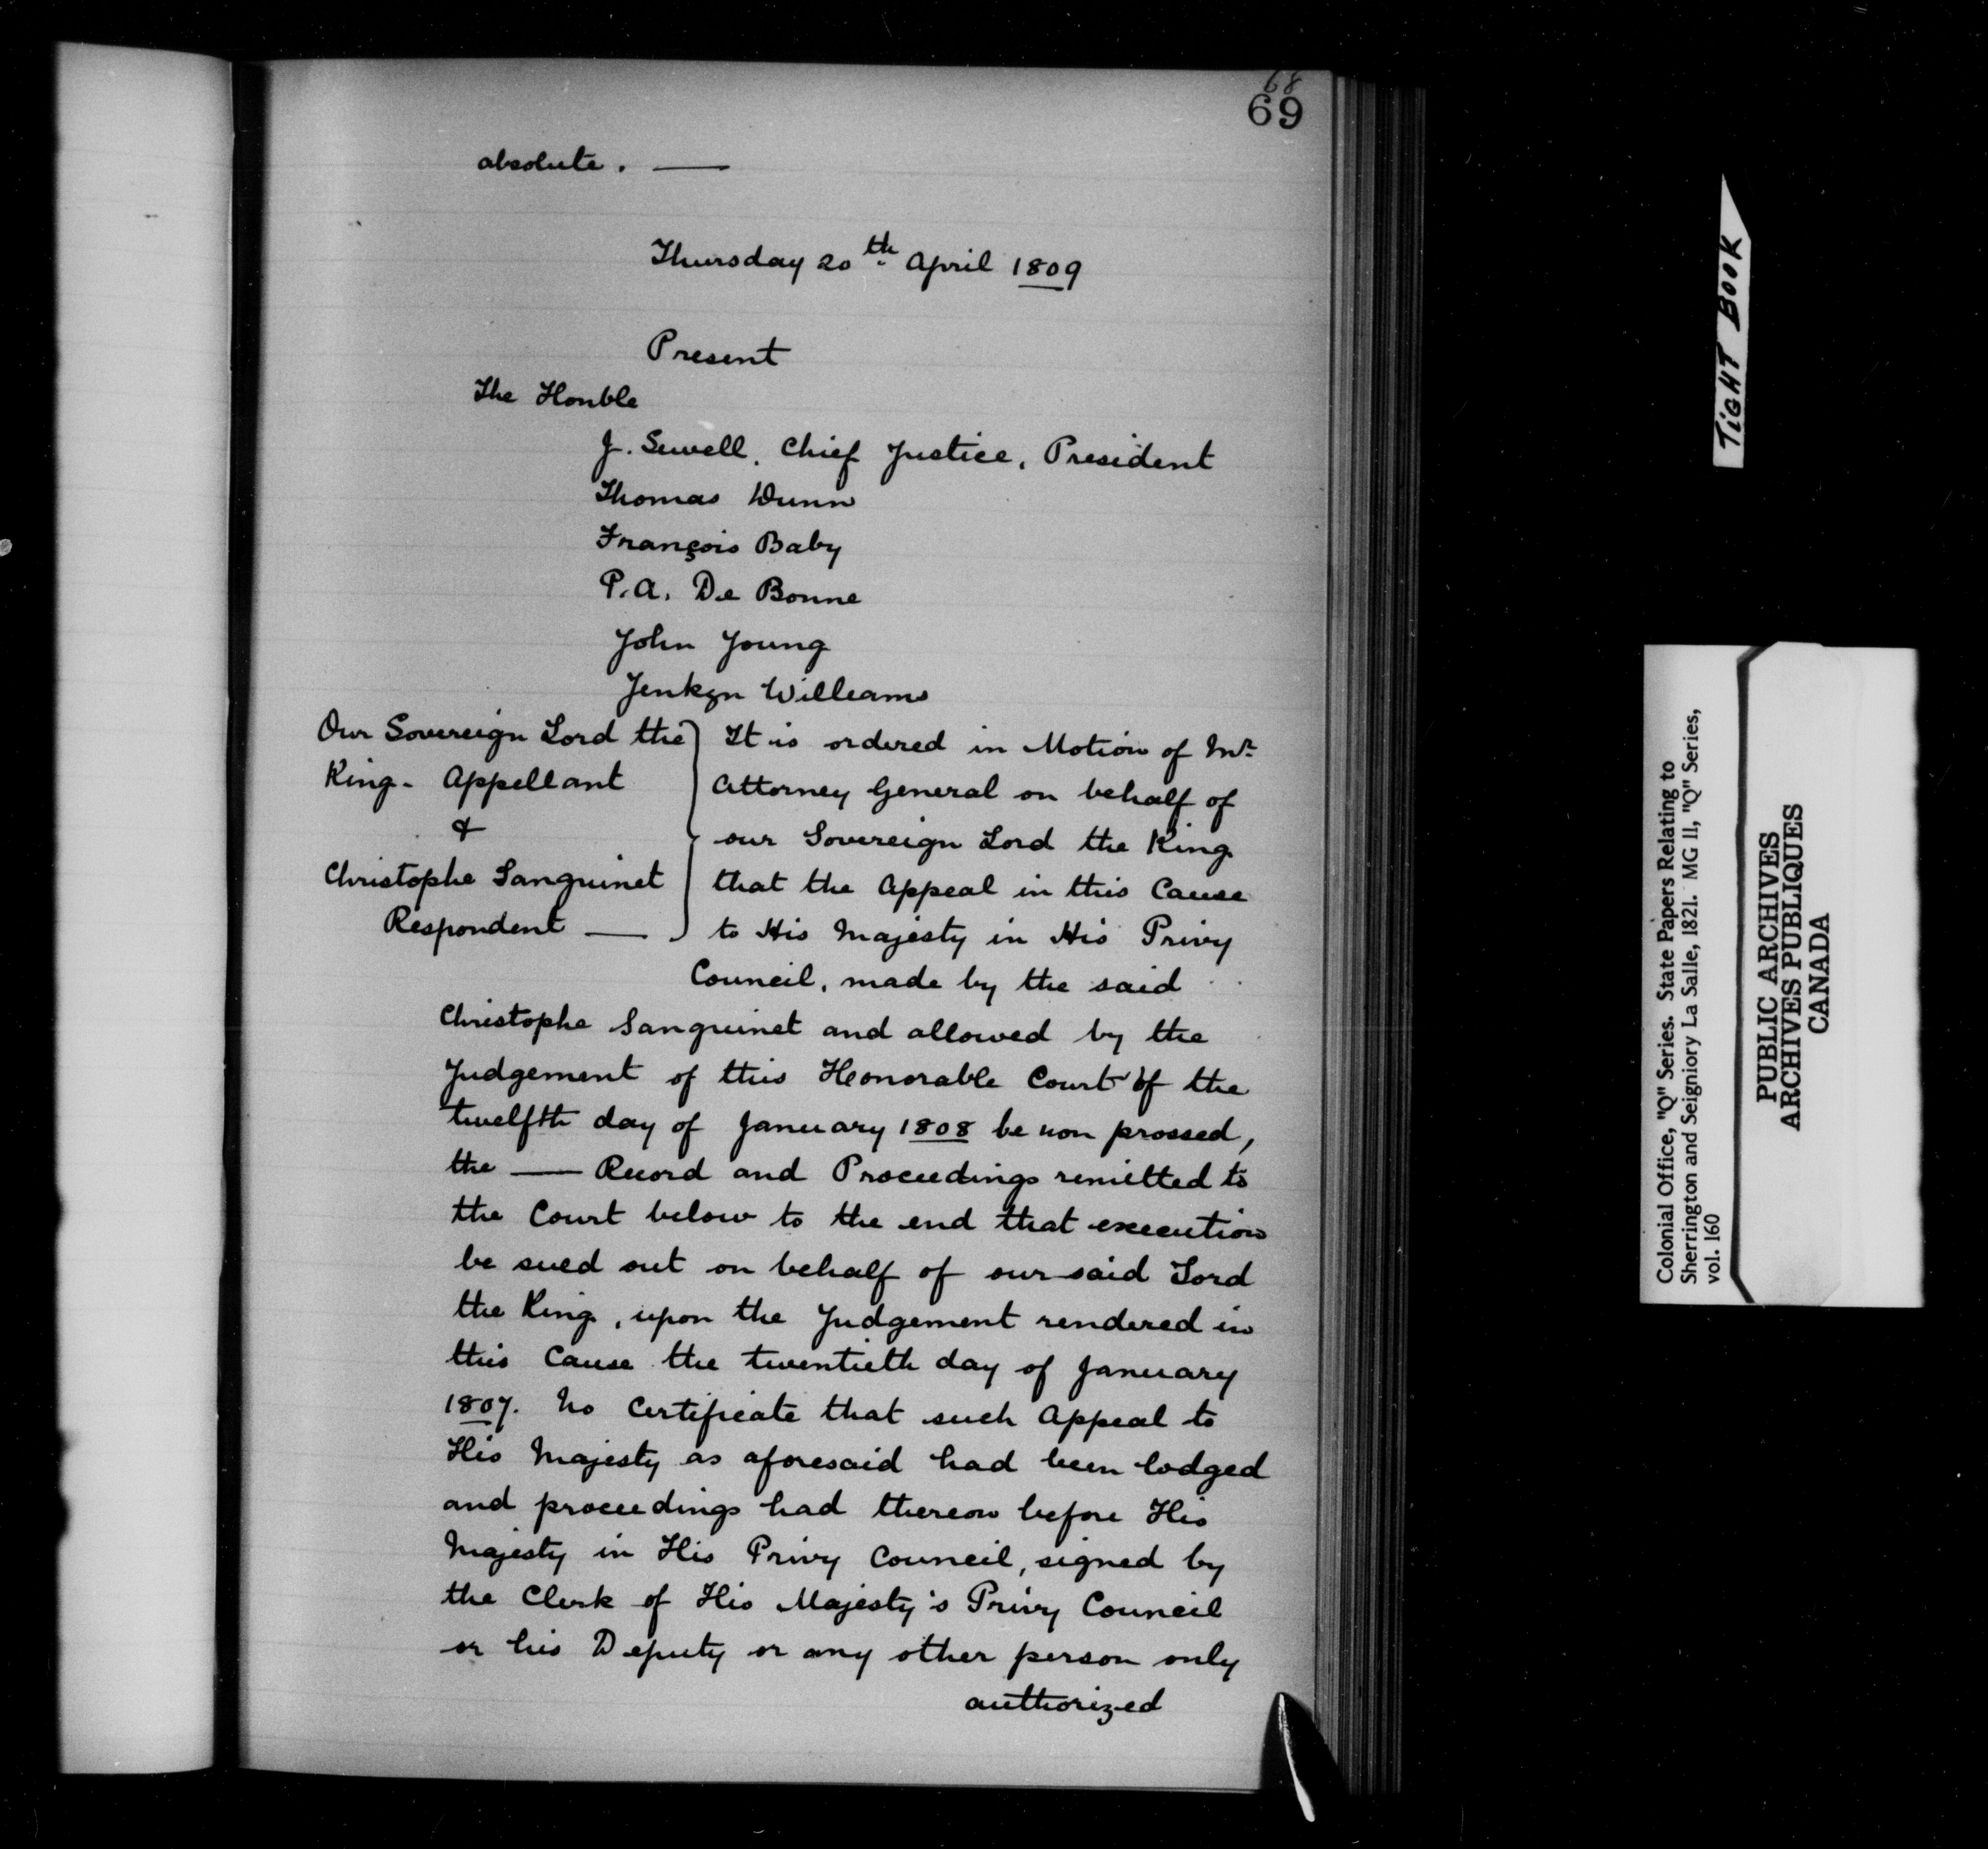 68
69
absolute. —
Thursday 20th April 1809
Present
The Honble
J. Sewell, Chief Justice, President
Thomas Dunn
François Baby
P.A. De Bonne
John Young
Jenkyn Williams
Our Sovereign Lord the
King - Appellant
&
Christophe Sanguinet
Respondent —
It is ordered in Motion of Mr
Attorney General on behalf of
our Sovereign Lord the King
that the Appeal in this Cause
to His Majesty in His Privy
Council, made by the said
Christophe Sanguinet and allowed by the
Judgement of this Honorable Court of the
twelfth day of January 1808 be non prossed,
the — Record and Proceedings remitted to
the Court below to the end that execution
be sued out on behalf of our said Lord
the King, upon the Judgement rendered in
this Cause the twentieth day of January
1807. No Certificate that such Appeal to
His Majesty as aforesaid had been lodged
and proceedings had thereon before His
Majesty in His Privy Council, signed by
the Clerk of His Majesty's Privy Council
or his Deputy or any other person only
authorized
TIGHT BOOK
Colonial Office, "Q" Series. State Papers Relating to
Sherrington and Seigniory La Salle, 1821. MG 11, "Q" Series,
vol. 160
PUBLIC ARCHIVES
ARCHIVES PUBLIQUES
CANADA